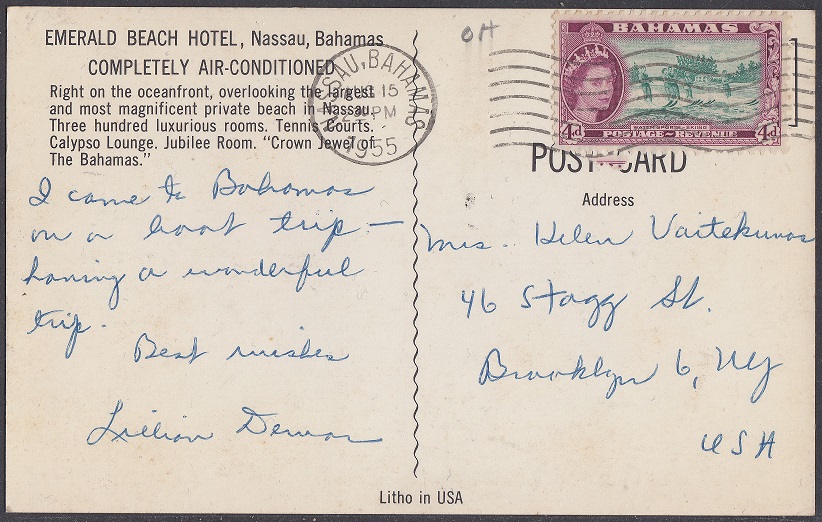 EMERALD BEACH HOTEL, Nassau, Bahamas
COMPLETELY AIR-CONDITIONED
Right on the oceanfront, overlooking the largest
and most magnificent private beach in Nassau.
Three hundred luxurious rooms. Tennis Courts.
Calypso Lounge. Jubilee Room. "Crown Jewel of
The Bahamas."
I came to Bahamas
on a boat trip —
having a wonderful
trip.
Best wishes
Lillian
NASSAU, BAHAMAS
15
PM
1955
OH
BAHAMAS
4d
POSTAGE & REVENUE
4d
POST CARD
Address
Mrs. Helen Vaitekunas
46 Stagg St.
Brooklyn 6, NY
USA
Litho in USA